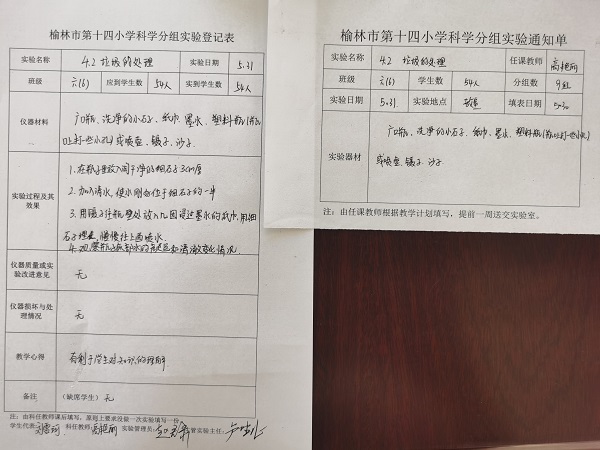 榆林市第十四小学科学分组实验登记表
实验名称 4.2 垃圾的处理 实验日期 5.31
班级 六(6) 应到学生数 54人 实到学生数 54人
仪器材料 广口瓶、洗净的小石子、纸巾、墨水、塑料瓶(瓶
上打一些小孔)或喷壶、镊子、沙子
实验过程及其效果
1.在瓶里放入干净的细石子3cm厚
2.加入清水,使水刚好位于细石子的一半
3.用镊子往瓶壁处放入几团浸过墨水的纸巾,用细
石子埋着,慢慢往上面喷水
仪器质量或实验改进意见 无
仪器损坏与处理情况 无
教学心得 有利于学生对知识的理解
备注 (缺席学生)无
注:由科任教师课后填写,原则上要求没做一次实验填写一份。
学生代表: 科任教师:高艳丽 实验管理员: 管实验主任:
榆林市第十四小学科学分组实验通知单
实验名称 4.2 垃圾的处理 任课教师 高艳丽
班级 六(6) 学生数 54人 分组数 9组
实验日期 5.31 实验地点 教室 填表日期 5.30
实验器材 广口瓶、洗净的小石子、纸巾、墨水、塑料瓶(瓶上打一些小孔)
或喷壶、镊子、沙子
注:由任课教师根据教学计划填写,提前一周送交实验室。